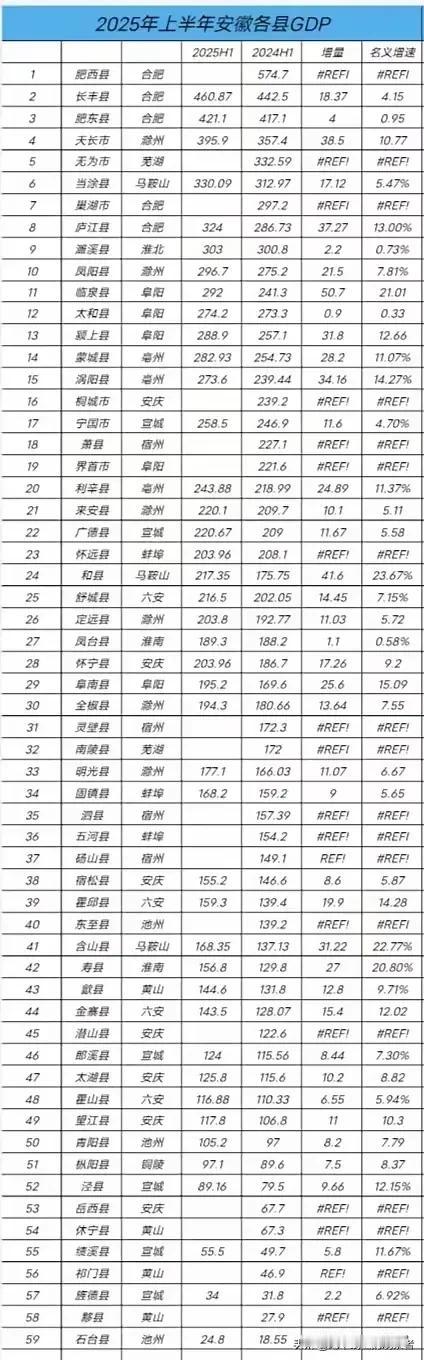 2025年上半年安徽各县GDP
2025H1 2024H1 增量 名义增速
1 肥西县 合肥 574.7 #REF! #REF!
2 长丰县 合肥 460.87 442.5 18.37 4.15
3 肥东县 合肥 421.1 417.1 4 0.95
4 天长市 滁州 395.9 357.4 38.5 10.77
5 无为市 芜湖 332.59 #REF! #REF!
6 当涂县 马鞍山 330.09 312.97 17.12 5.47%
7 巢湖市 合肥 297.2 #REF! #REF!
8 庐江县 合肥 324 286.73 37.27 13.00%
9 濉溪县 淮北 303 300.8 2.2 0.73%
10 凤阳县 滁州 296.7 275.2 21.5 7.81%
11 临泉县 阜阳 292 241.3 50.7 21.01
12 太和县 阜阳 274.2 273.3 0.9 0.33
13 颍上县 阜阳 288.9 257.1 31.8 12.66
14 蒙城县 亳州 282.93 254.73 28.2 11.07%
15 涡阳县 亳州 273.6 239.44 34.16 14.27%
16 桐城市 安庆 239.2 #REF! #REF!
17 宁国市 宣城 258.5 246.9 11.6 4.70%
18 萧县 宿州 227.1 #REF! #REF!
19 界首市 阜阳 221.6 #REF! #REF!
20 利辛县 亳州 243.88 218.99 24.89 11.37%
21 来安县 滁州 220.1 209.7 10.1 5.11
22 广德县 宣城 220.67 209 11.67 5.58
23 怀远县 蚌埠 203.96 208.1 #REF! #REF!
24 和县 马鞍山 217.35 175.75 41.6 23.67%
25 舒城县 六安 216.5 202.05 14.45 7.15%
26 定远县 滁州 203.8 192.77 11.03 5.72
27 凤台县 淮南 189.3 188.2 1.1 0.58%
28 怀宁县 安庆 203.96 186.7 17.26 9.2
29 阜南县 阜阳 195.2 169.6 25.6 15.09
30 全椒县 滁州 194.3 180.66 13.64 7.55
31 灵璧县 宿州 172.3 #REF! #REF!
32 南陵县 芜湖 172 #REF! #REF!
33 明光县 滁州 177.1 166.03 11.07 6.67
34 固镇县 蚌埠 168.2 159.2 9 5.65
35 泗县 宿州 157.39 #REF! #REF!
36 五河县 蚌埠 154.2 #REF! #REF!
37 砀山县 宿州 149.1 REF! #REF!
38 宿松县 安庆 155.2 146.6 8.6 5.87
39 霍邱县 六安 159.3 139.4 19.9 14.28
40 东至县 池州 139.2 #REF! #REF!
41 含山县 马鞍山 168.35 137.13 31.22 22.77%
42 寿县 淮南 156.8 129.8 27 20.80%
43 歙县 黄山 144.6 131.8 12.8 9.71%
44 金寨县 六安 143.5 128.07 15.4 12.02
45 潜山县 安庆 122.6 #REF! #REF!
46 郎溪县 宣城 124 115.56 8.44 7.30%
47 太湖县 安庆 125.8 115.6 10.2 8.82
48 霍山县 六安 116.88 110.33 6.55 5.94%
49 望江县 安庆 117.8 106.8 11 10.3
50 青阳县 池州 105.2 97 8.2 7.79
51 枞阳县 铜陵 97.1 89.6 7.5 8.37
52 泾县 宣城 89.16 79.5 9.66 12.15%
53 岳西县 安庆 67.7 #REF! #REF!
54 休宁县 黄山 67.3 #REF! #REF!
55 绩溪县 宣城 55.5 49.7 5.8 11.67%
56 祁门县 黄山 46.9 REF! #REF!
57 旌德县 宣城 34 31.8 2.2 6.92%
58 黟县 黄山 27.9 #REF! #REF!
59 石台县 池州 24.8 18.55